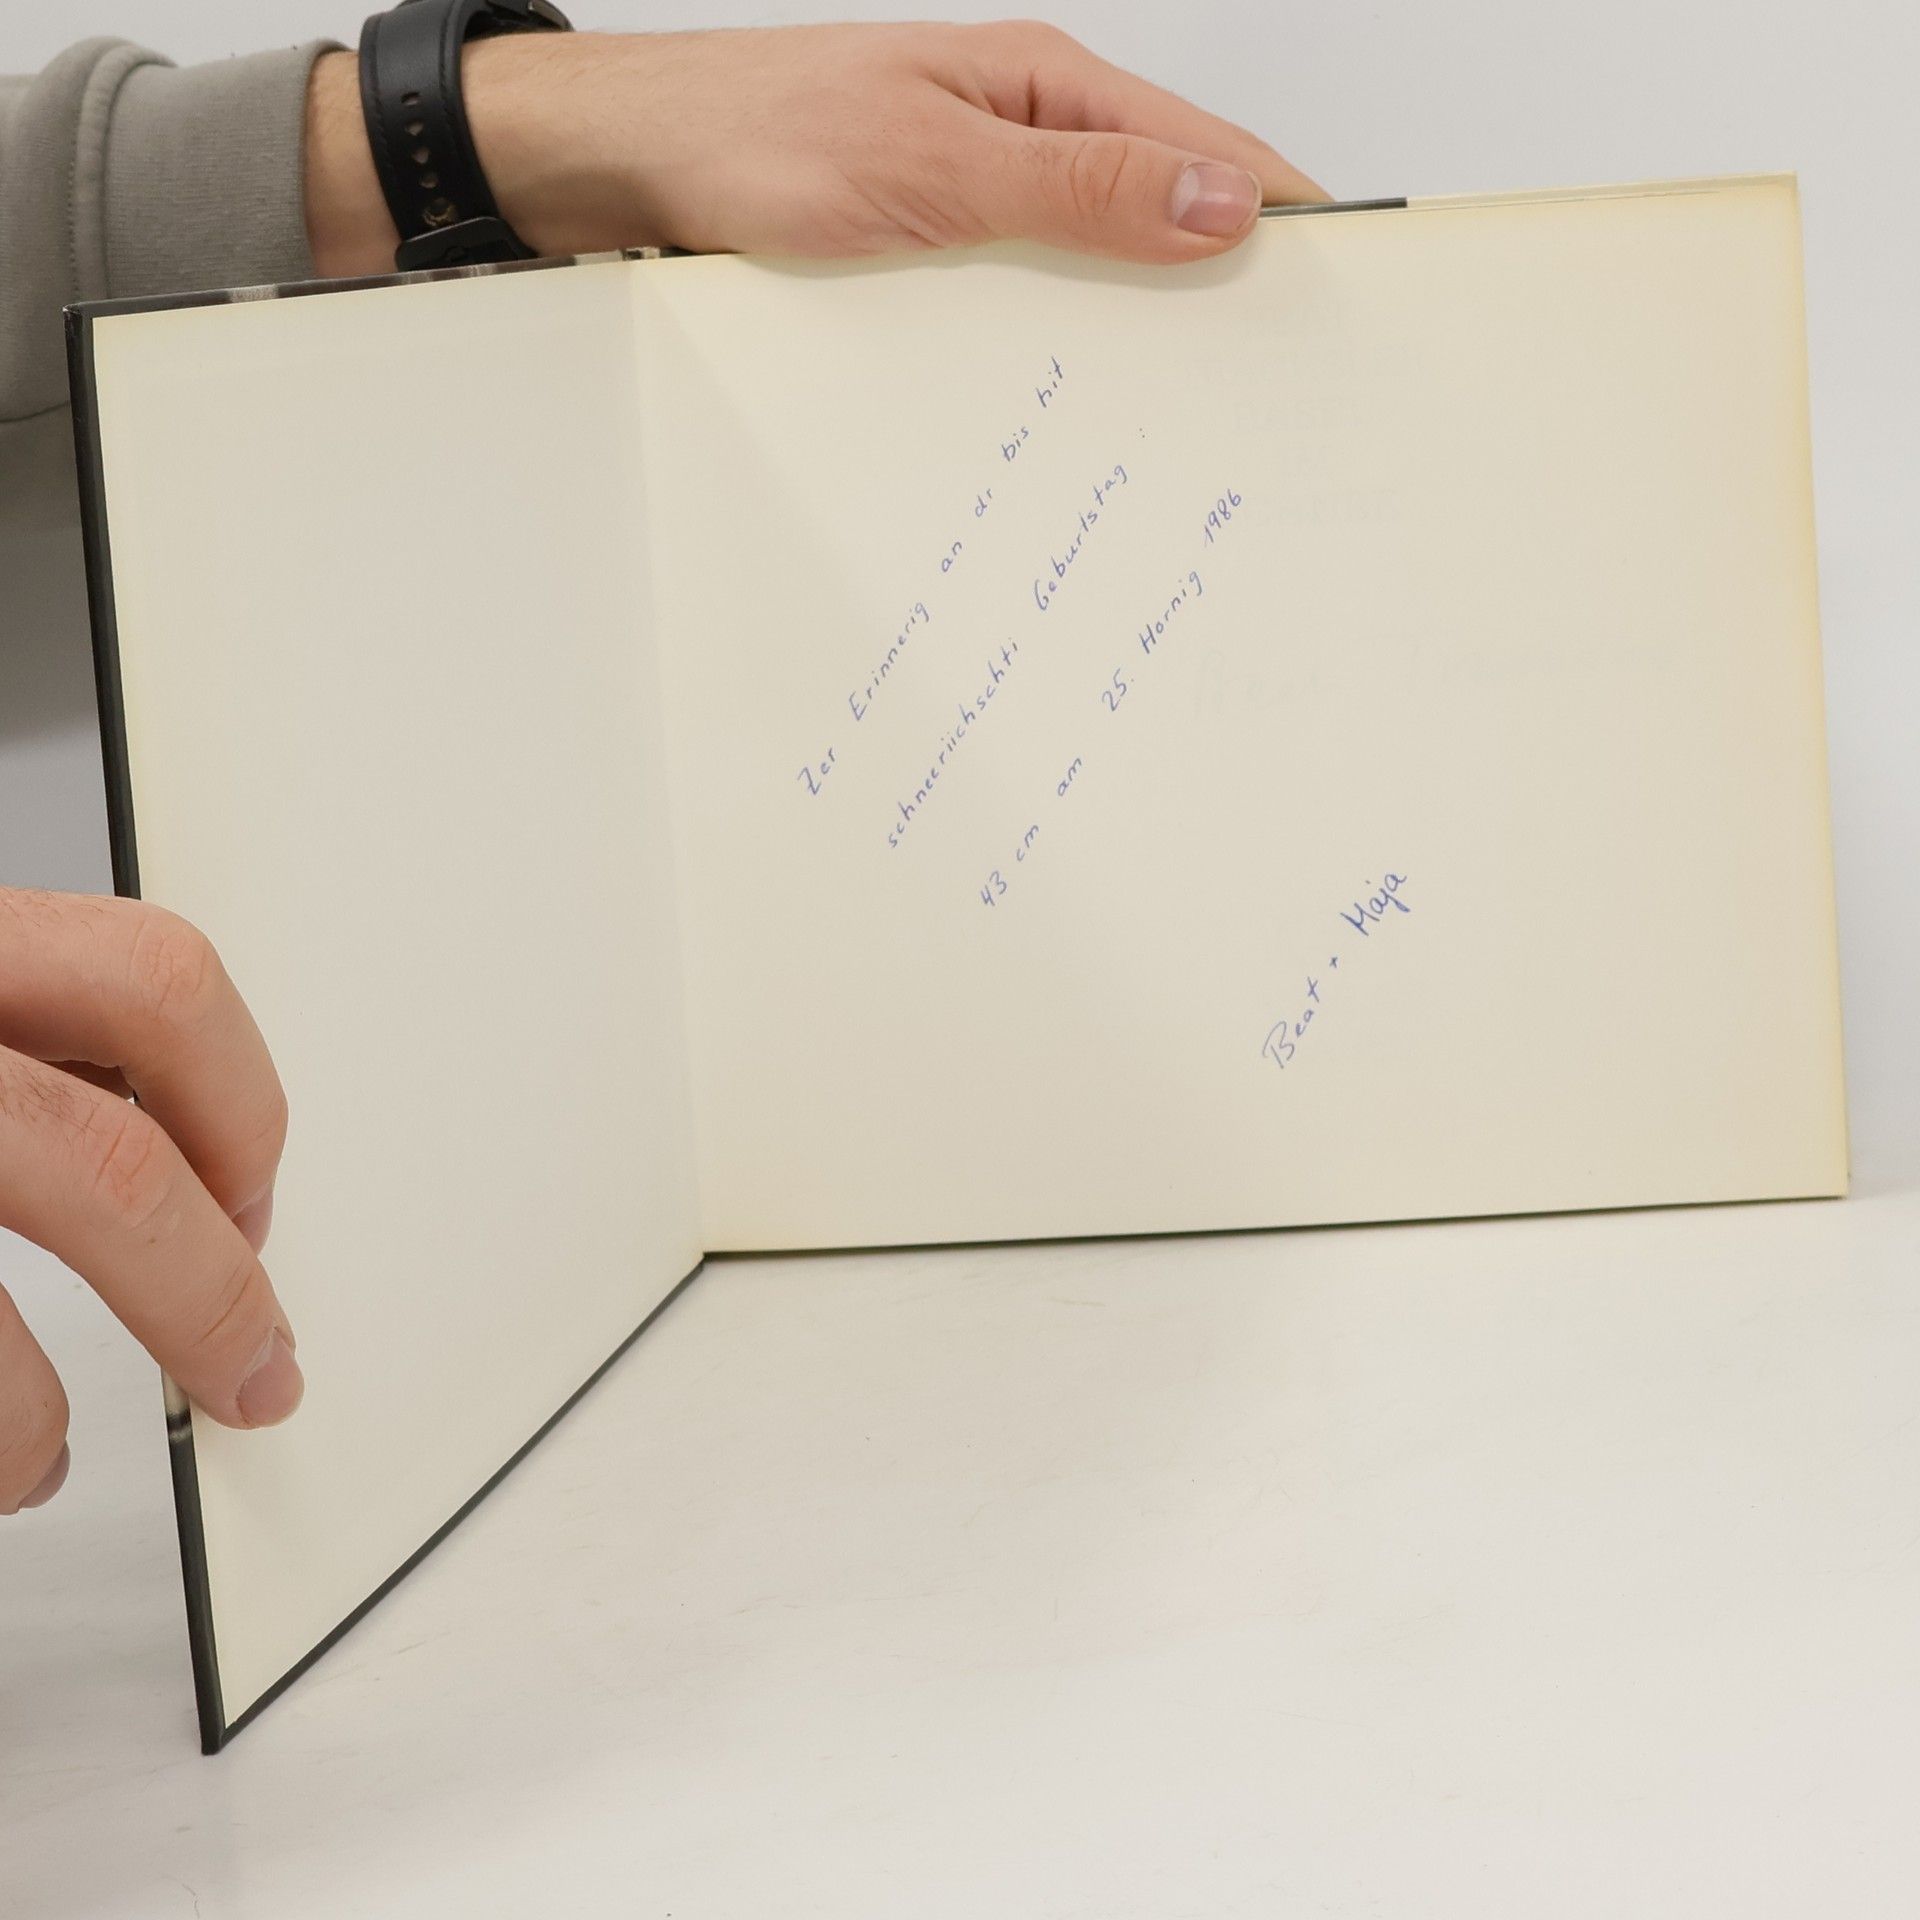 Zer Erinnerig an dr bis hit
schneeriichschti Geburtstag :
43 cm am 25. Hornig 1986
Beat + Maja